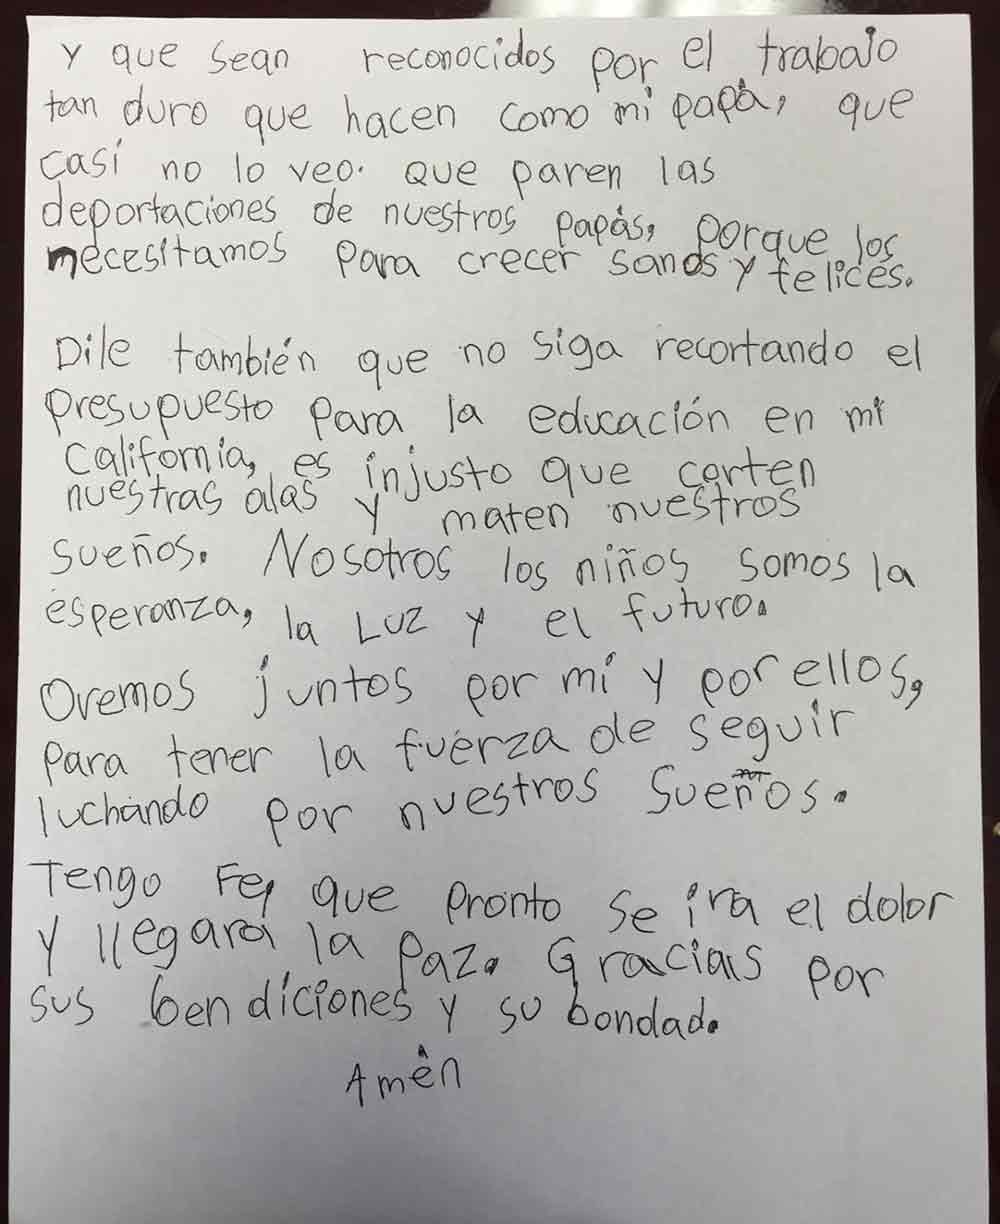 y que sean reconocidos por el trabajo
tan duro que hacen como mi papá, que
casi no lo veo. Que paren las
deportaciones de nuestros papás, porque los
necesitamos para crecer sanos y felices.
Dile también que no siga recortando el
presupuesto para la educación en mi
California, es injusto que corten
nuestras alas y maten nuestros
sueños. Nosotros los niños somos la
esperanza, la Luz y el futuro.
Oremos juntos por mi y por ellos,
para tener la fuerza de seguir
luchando por nuestros Sueños.
Tengo Fe, que pronto se ira el dolor
y llegará la paz. Gracias por
sus bendiciones y su bondad.
Amén